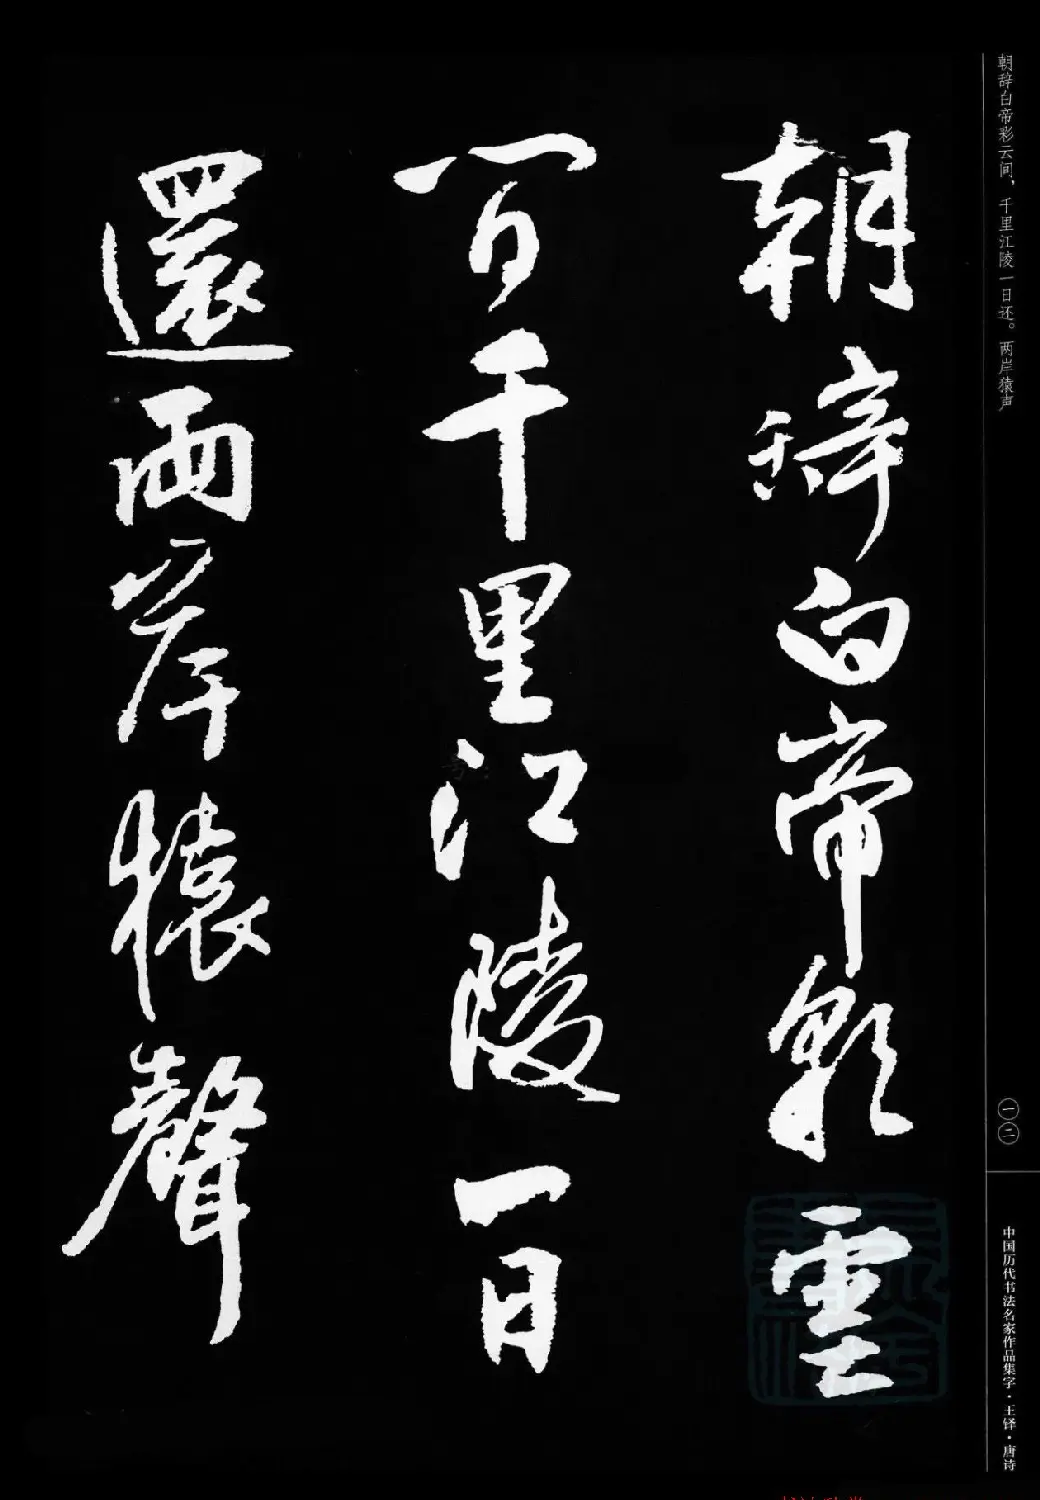 朝辞白帝彩云间，千里江陵一日还。两岸猿声
朝辭白帝彩雲
間千里江陵一日
還兩岸猿聲
一二
中国历代书法名家作品集字·王铎·唐诗